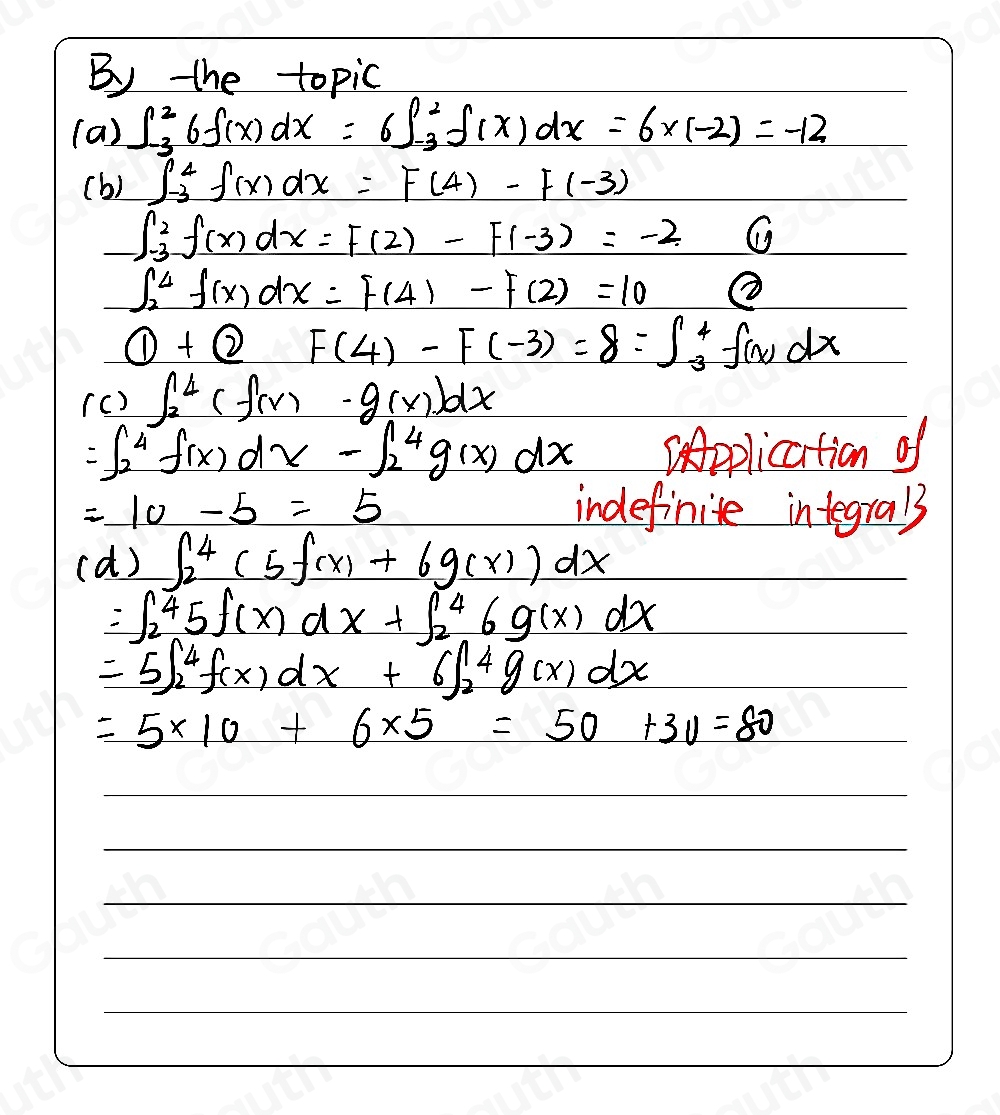 By the topic
(a) ∫₋₃² 6f(x) dx = 6∫₋₃² f(x) dx = 6×(-2) = -12
(b) ∫₋₃⁴ f(x) dx = F(4) - F(-3)
∫₋₃² f(x) dx = F(2) - F(-3) = -2 ①
∫₂⁴ f(x) dx = F(4) - F(2) = 10 ②
① + ② F(4) - F(-3) = 8 = ∫₋₃⁴ f(x) dx
(c) ∫₂⁴ (f(x) - g(x)) dx
= ∫₂⁴ f(x) dx - ∫₂⁴ g(x) dx
= 10 - 5 = 5
Application of
indefinite integral
(d) ∫₂⁴ (5f(x) + 6g(x)) dx
= ∫₂⁴ 5f(x) dx + ∫₂⁴ 6g(x) dx
= 5∫₂⁴ f(x) dx + 6∫₂⁴ g(x) dx
= 5×10 + 6×5 = 50 +30 = 80